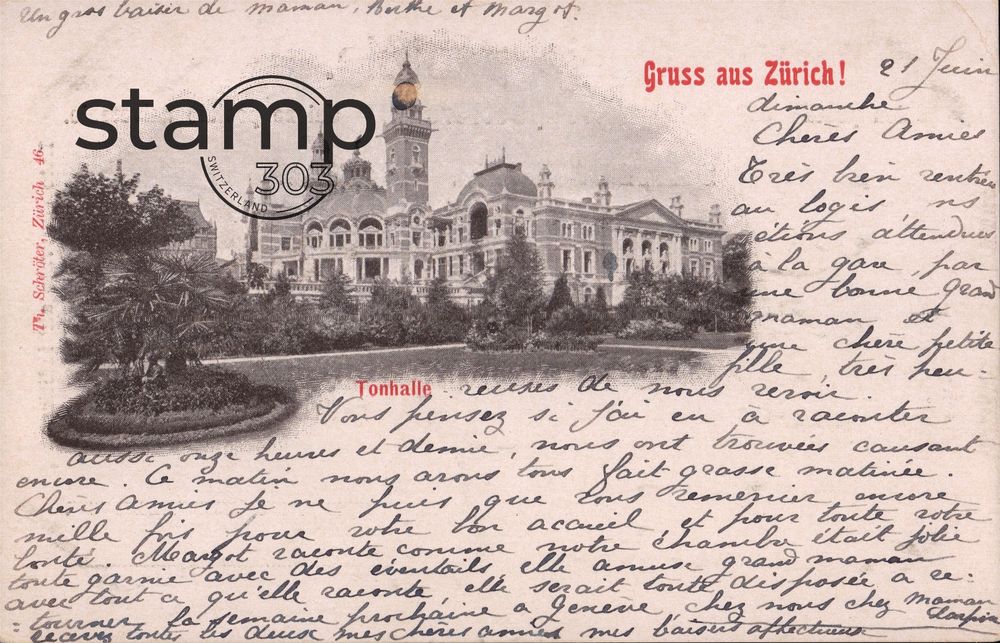 Un gros baiser de maman, Berthe et Margot.
Gruss aus Zürich!
21 Juin
dimanche
Chères Amies
Très bien rentrées
au logis ns
étions attendues
à la gare, par
une bonne grand
maman et
une chère petite
fille, très heu-
reuses de nous revoir.
Vous pensez si j'ai eu à raconter
aussi onze heures et demie, nous ont trouvées causant
encore. Ce matin nous avons tous fait grasse matinée.
Chères Amies je ne puis que vous remercier encore
mille fois pour votre bon accueil, et pour toute votre
bonté. Margot raconte comme notre chambre était jolie
toute garnie avec des éventails elle amuse grand maman
avec tout ce qu'elle raconte elle serait toute disposée a re-
tourner la semaine prochaine a Genève chez nous chez maman
recevez toutes les deux mes chères amies mes baisers affectueux
Tonhalle
Th. Schröter, Zürich. 46.
stamp
303
SWITZERLAND